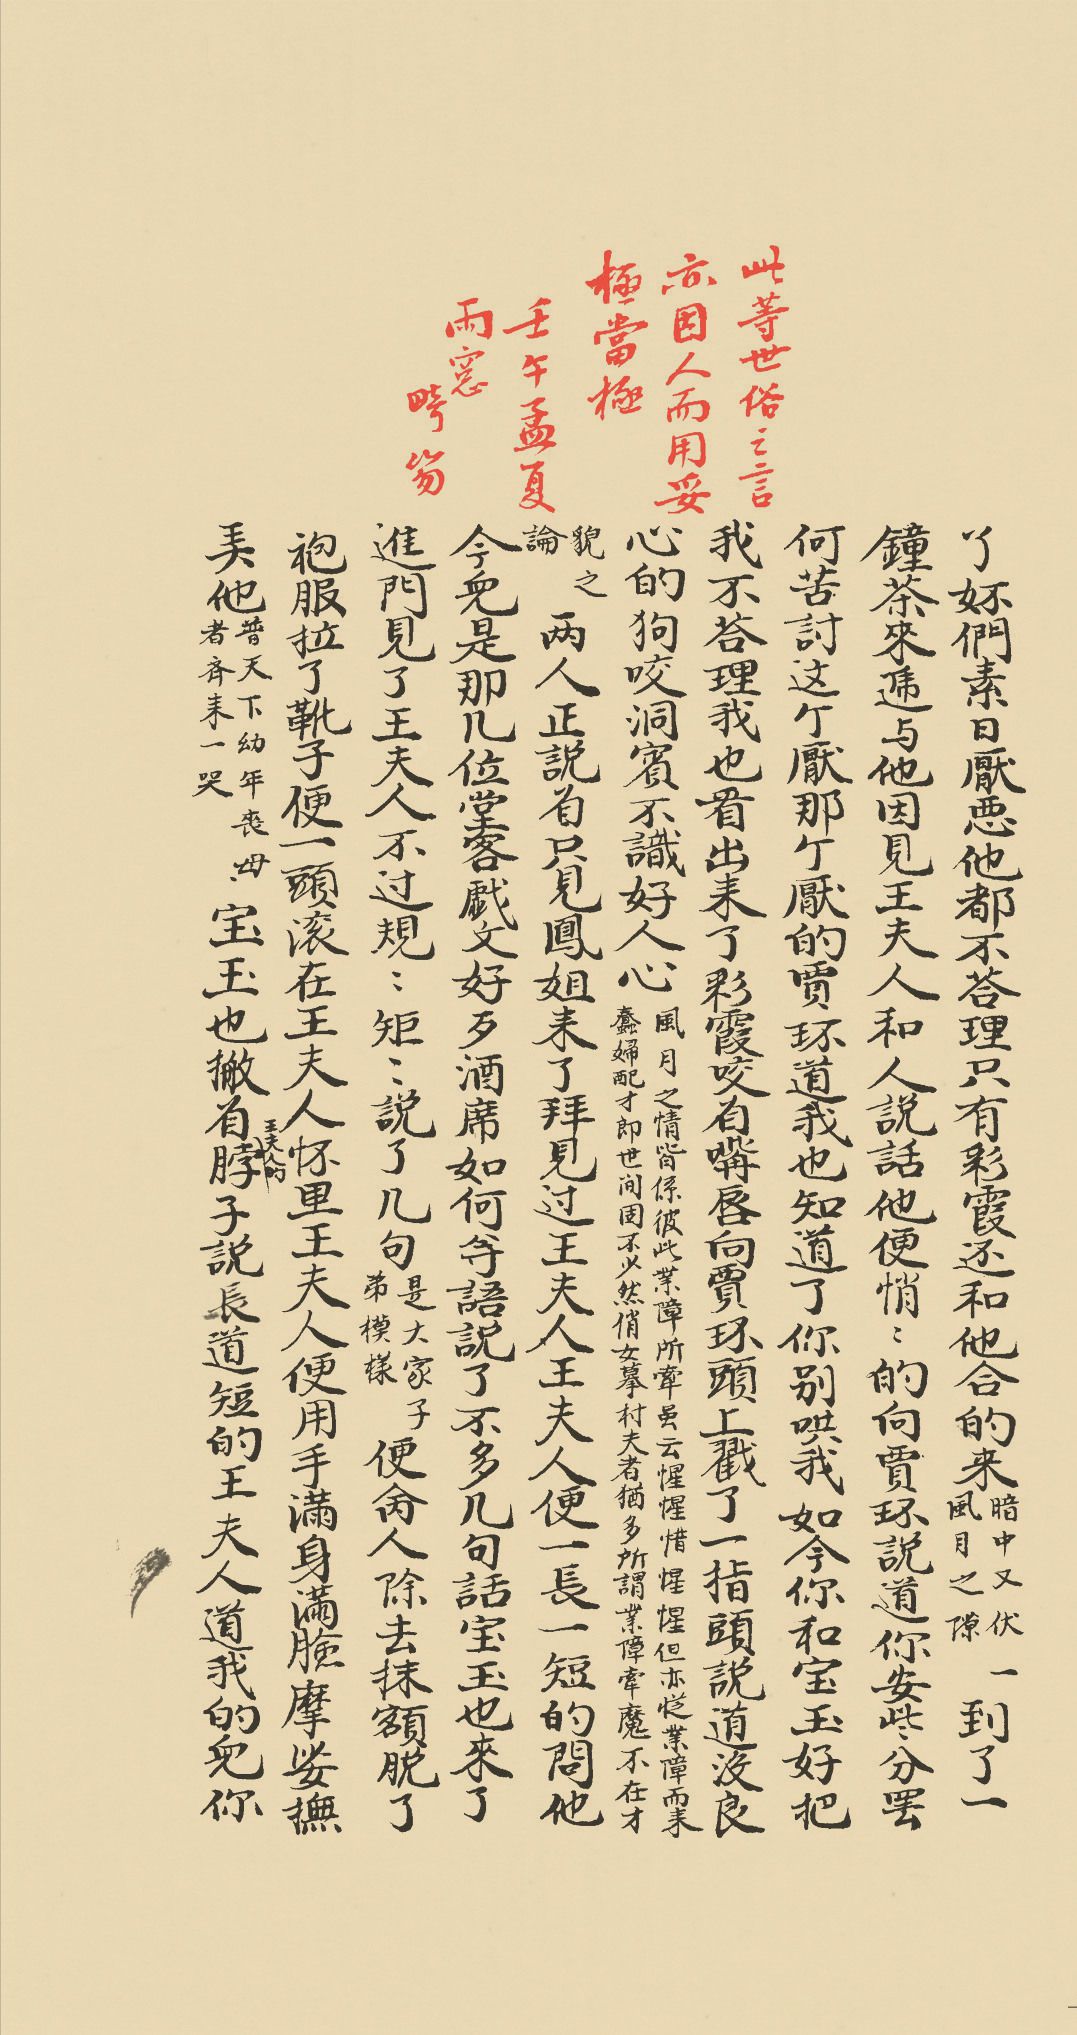 此等世俗之言
亦因人而用妥
極當極
壬午孟夏
雨窓
畸笏
丫嬛們素日厭惡他都不荅理只有彩霞还和他合的来
暗中又伏
風月之隙
一到了一
鐘茶來遞与他因見王夫人和人説話他便悄〻的向賈环說道你安些分罢
何苦討这个厭那个厭的賈环道我也知道了你别哄我如今你和宝玉好把
我不荅理我也看出来了彩霞咬着嘴唇向賈环頭上戳了一指頭說道没良
心的狗咬洞賓不識好人心
風月之情皆係彼此業障所牽虽云惺惺惜惺惺但亦従業障而来
蠢婦配才郎世间固不少然俏女慕村夫者猶多所謂業障牽魔不在才
貌之
論
两人正説着只見鳳姐来了拜見过王夫人王夫人便一長一短的問他
今兒是那几位堂客戯文好歹酒席如何等語説了不多几句話宝玉也來了
進門見了王夫人不过規〻矩〻説了几句
是大家子
弟模樣
便命人除去抹額脱了
袍服拉了靴子便一頭滚在王夫人怀里王夫人便用手滿身滿臉摩娑撫
弄他
普天下幼年喪母
者齐来一哭
宝玉也搬着
王夫人的
脖子説長道短的王夫人道我的兒你